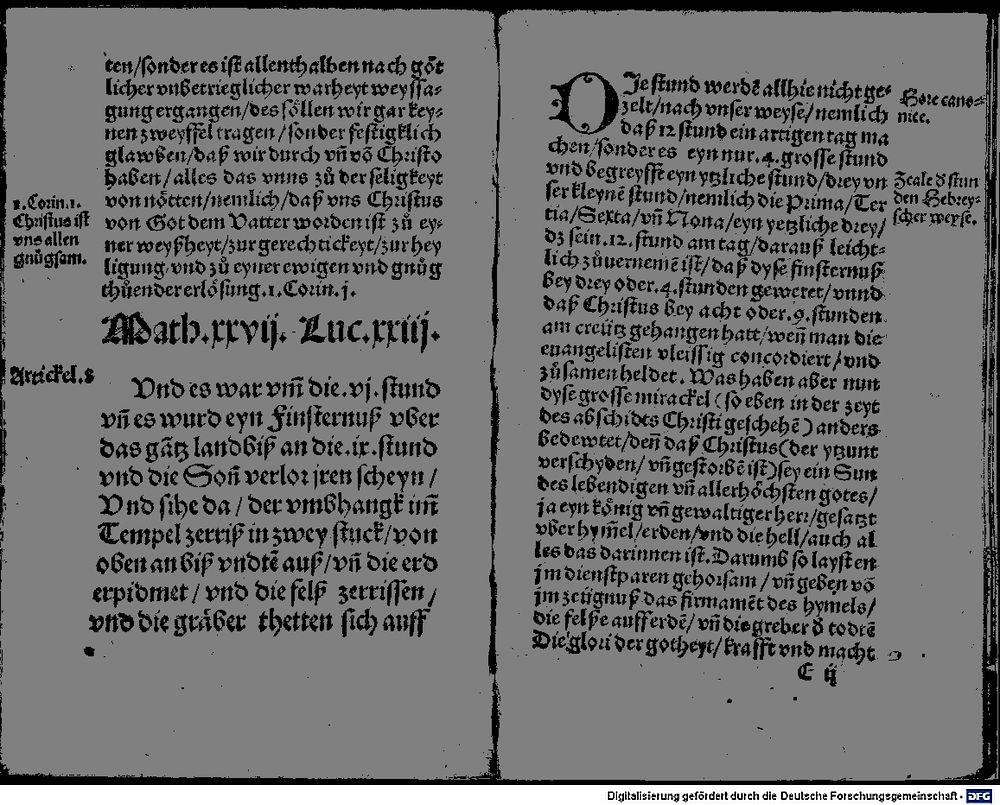 ten/sonder es ist allenthalben nach gőt
licher vnbetrieglicher warheyt weyssa-
gung ergangen/des söllen wir gar key-
nen zweyffel tragen/sonder festigklich
glawben/daß wir durch vñ võ Christo
haben/alles das vnns zů der seligkeyt
von nötten/nemlich/daß vns Christus
von Got dem Vatter worden ist zů ey-
ner weyßheyt/zur gerechtickeyt/zur hey
ligung vnd zů eyner ewigen vnd gnůg
thůender erlösung.1.Corin.j.
1.Corin.1.
Christus ist
vns allen
gnůgsam.
Math.xxvij. Luc.xxiij.
Artickel.8
Vnd es war vm̃ die.vj.stund
vñ es wurd eyn Finsternuß vber
das gãtz land biß an die.ix.stund
vnd die Soñ verlor jren scheyn/
Vnd sihe da/der vmbhangk im̃
Tempel zerriß in zwey stuck/von
oben an biß vndtẽ auß/vñ die erd
erpidmet/vnd die felß zerrissen/
vnd die gräber thetten sich auff
DIe stund werdẽ allhie nicht ge-
zelt/nach vnser weyse/nemlich
daß 12 stund ein artigen tag ma
chen/sonder es eyn nur.4.grosse stund
vnd begreyfft eyn ytzliche stund/drey vn
ser kleynẽ stund/nemlich die Prima/Ter
tia/Sexta/vñ Nona/eyn yetzliche drey/
dz sein.12.stund am tag/darauß leicht-
lich zůuernemẽ ist/daß dyse finsternuß
bey drey oder.4.stunden geweret/vnnd
daß Christus bey acht oder.9.stunden
am creütz gehangen hatt/weñ man die
euangelisten vleissig concordiert/vnd
zůsamen heldet. Was haben aber nun
dyse grosse mirackel (so eben in der zeyt
des abschidts Christi geschehẽ) anders
bedewtet/deñ daß Christus(der ytzunt
verschyden/vñ gestorbẽ ist)sey ein Sun
des lebendigen vñ allerhöchsten gotes/
ja eyn könig vñ gewaltiger herr/gesatzt
vber hym̃el/erden/vnd die hell/auch al
les das darinnen ist. Darumb so layst en
jm dienstparen gehorsam/vñ geben võ
jm zeügnuß das firmamẽt des hymels/
die felße auff erdẽ/vñ die greber ð todtẽ
Die glori der gotheyt/krafft vnd macht
C ij
Hore cano-
nice.
Zeale ð stun
den Hebrey-
scher weyse.
Digitalisierung gefördert durch die Deutsche Forschungsgemeinschaft - DFG